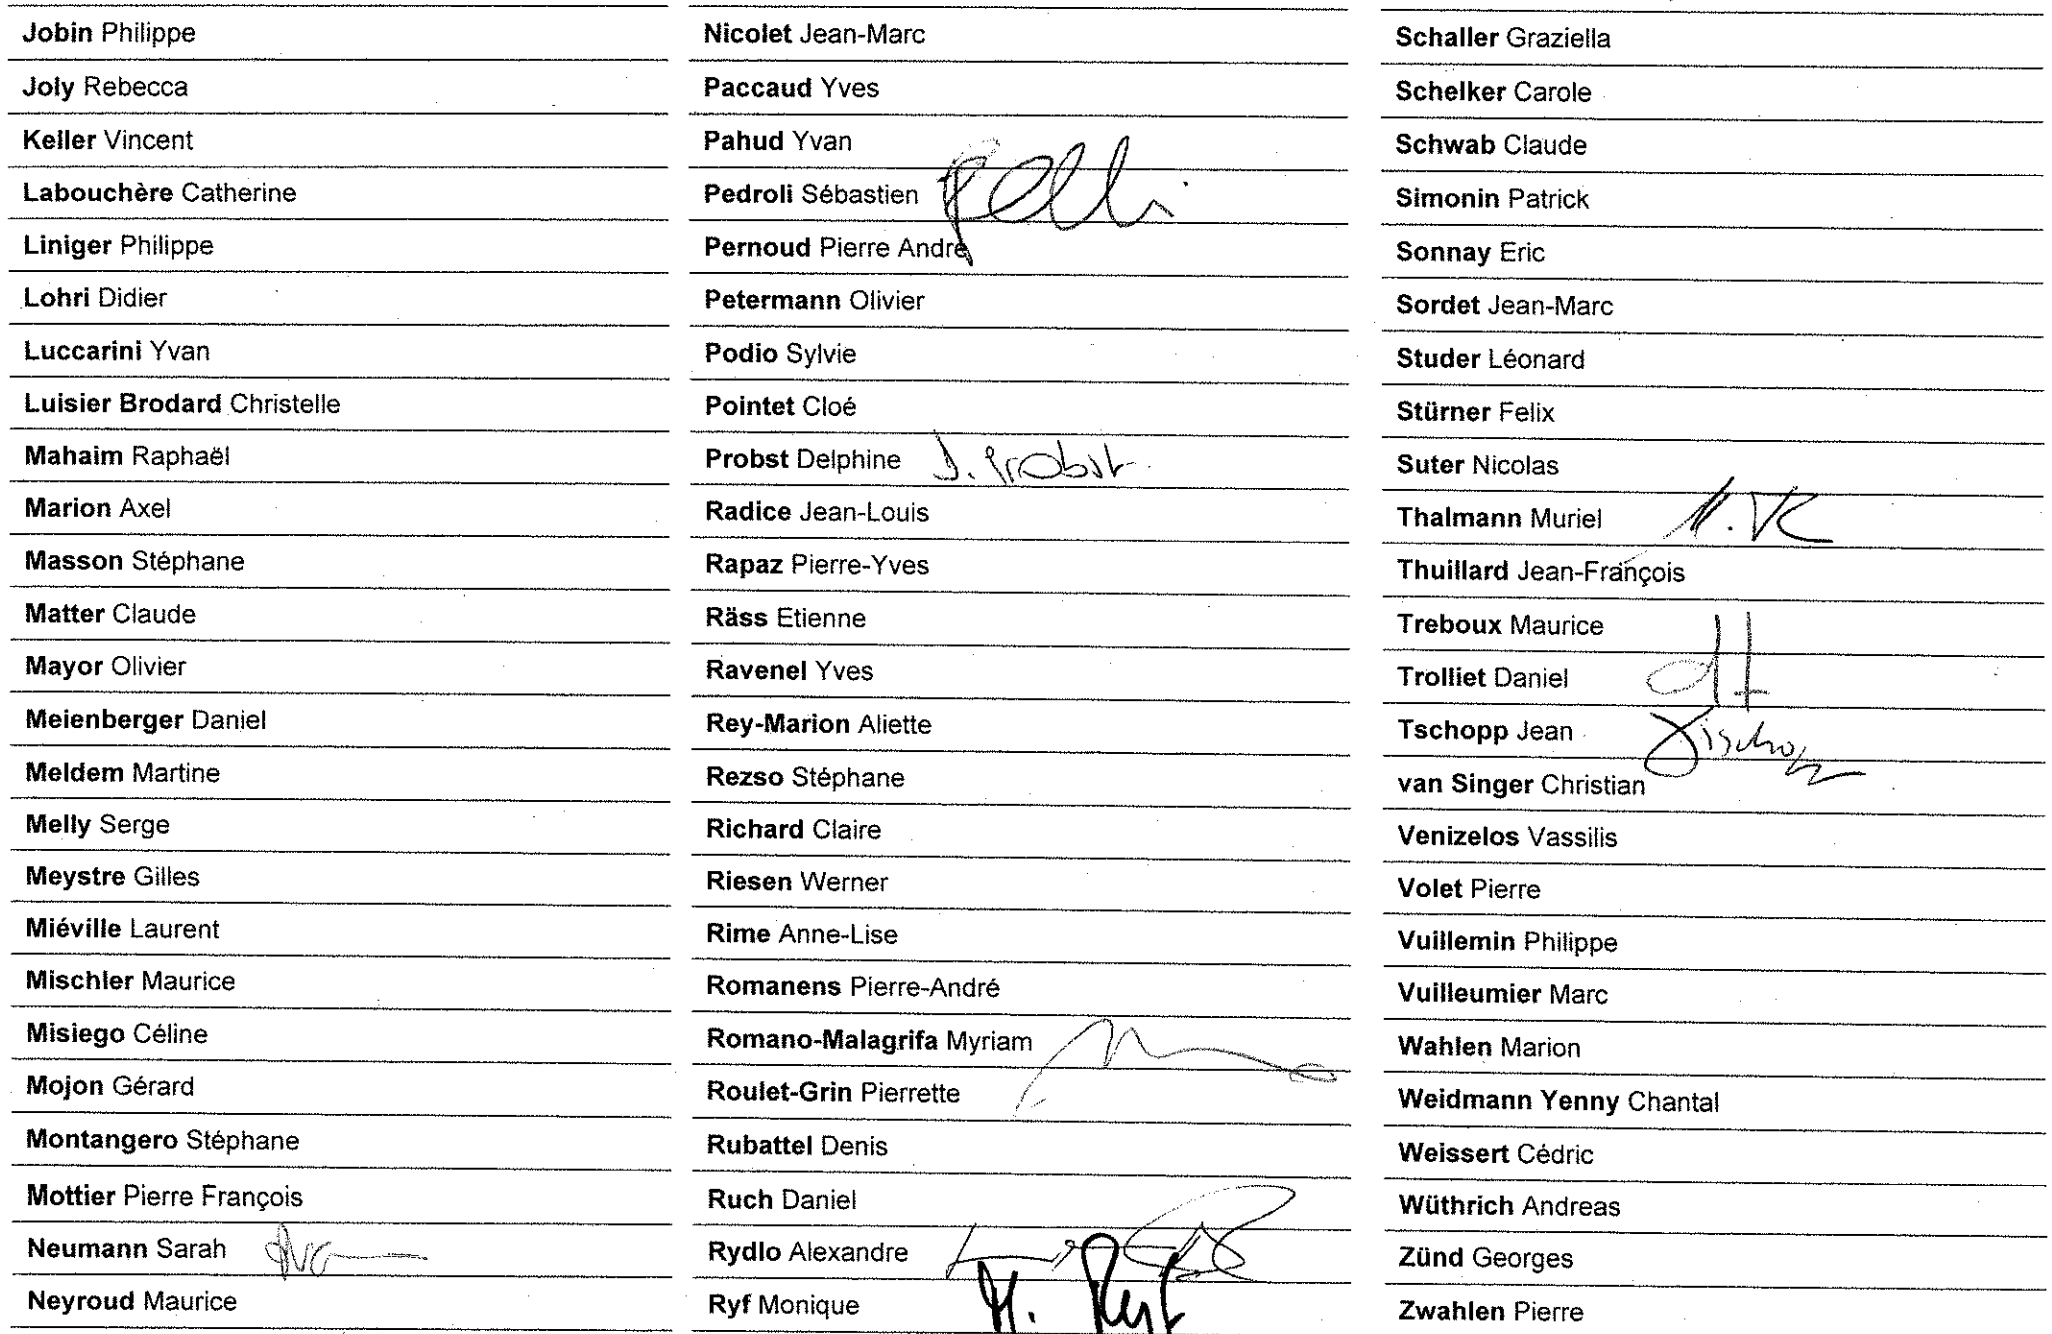 Jobin Philippe
Joly Rebecca
Keller Vincent
Labouchère Catherine
Liniger Philippe
Lohri Didier
Luccarini Yvan
Luisier Brodard Christelle
Mahaim Raphaël
Marion Axel
Masson Stéphane
Matter Claude
Mayor Olivier
Meienberger Daniel
Meldem Martine
Melly Serge
Meystre Gilles
Miéville Laurent
Mischler Maurice
Misiego Céline
Mojon Gérard
Montangero Stéphane
Mottier Pierre François
Neumann Sarah
Neyroud Maurice
Nicolet Jean-Marc
Paccaud Yves
Pahud Yvan
Pedroli Sébastien
Pernoud Pierre André
Petermann Olivier
Podio Sylvie
Pointet Cloé
Probst Delphine D. Probst
Radice Jean-Louis
Rapaz Pierre-Yves
Räss Etienne
Ravenel Yves
Rey-Marion Aliette
Rezso Stéphane
Richard Claire
Riesen Werner
Rime Anne-Lise
Romanens Pierre-André
Romano-Malagrifa Myriam
Roulet-Grin Pierrette
Rubattel Denis
Ruch Daniel
Rydlo Alexandre
Ryf Monique M. Ryf
Schaller Graziella
Schelker Carole
Schwab Claude
Simonin Patrick
Sonnay Eric
Sordet Jean-Marc
Studer Léonard
Stürner Felix
Suter Nicolas
Thalmann Muriel
Thuillard Jean-François
Treboux Maurice
Trolliet Daniel
Tschopp Jean Tschopp
van Singer Christian
Venizelos Vassilis
Volet Pierre
Vuillemin Philippe
Vuilleumier Marc
Wahlen Marion
Weidmann Yenny Chantal
Weissert Cédric
Wüthrich Andreas
Zünd Georges
Zwahlen Pierre